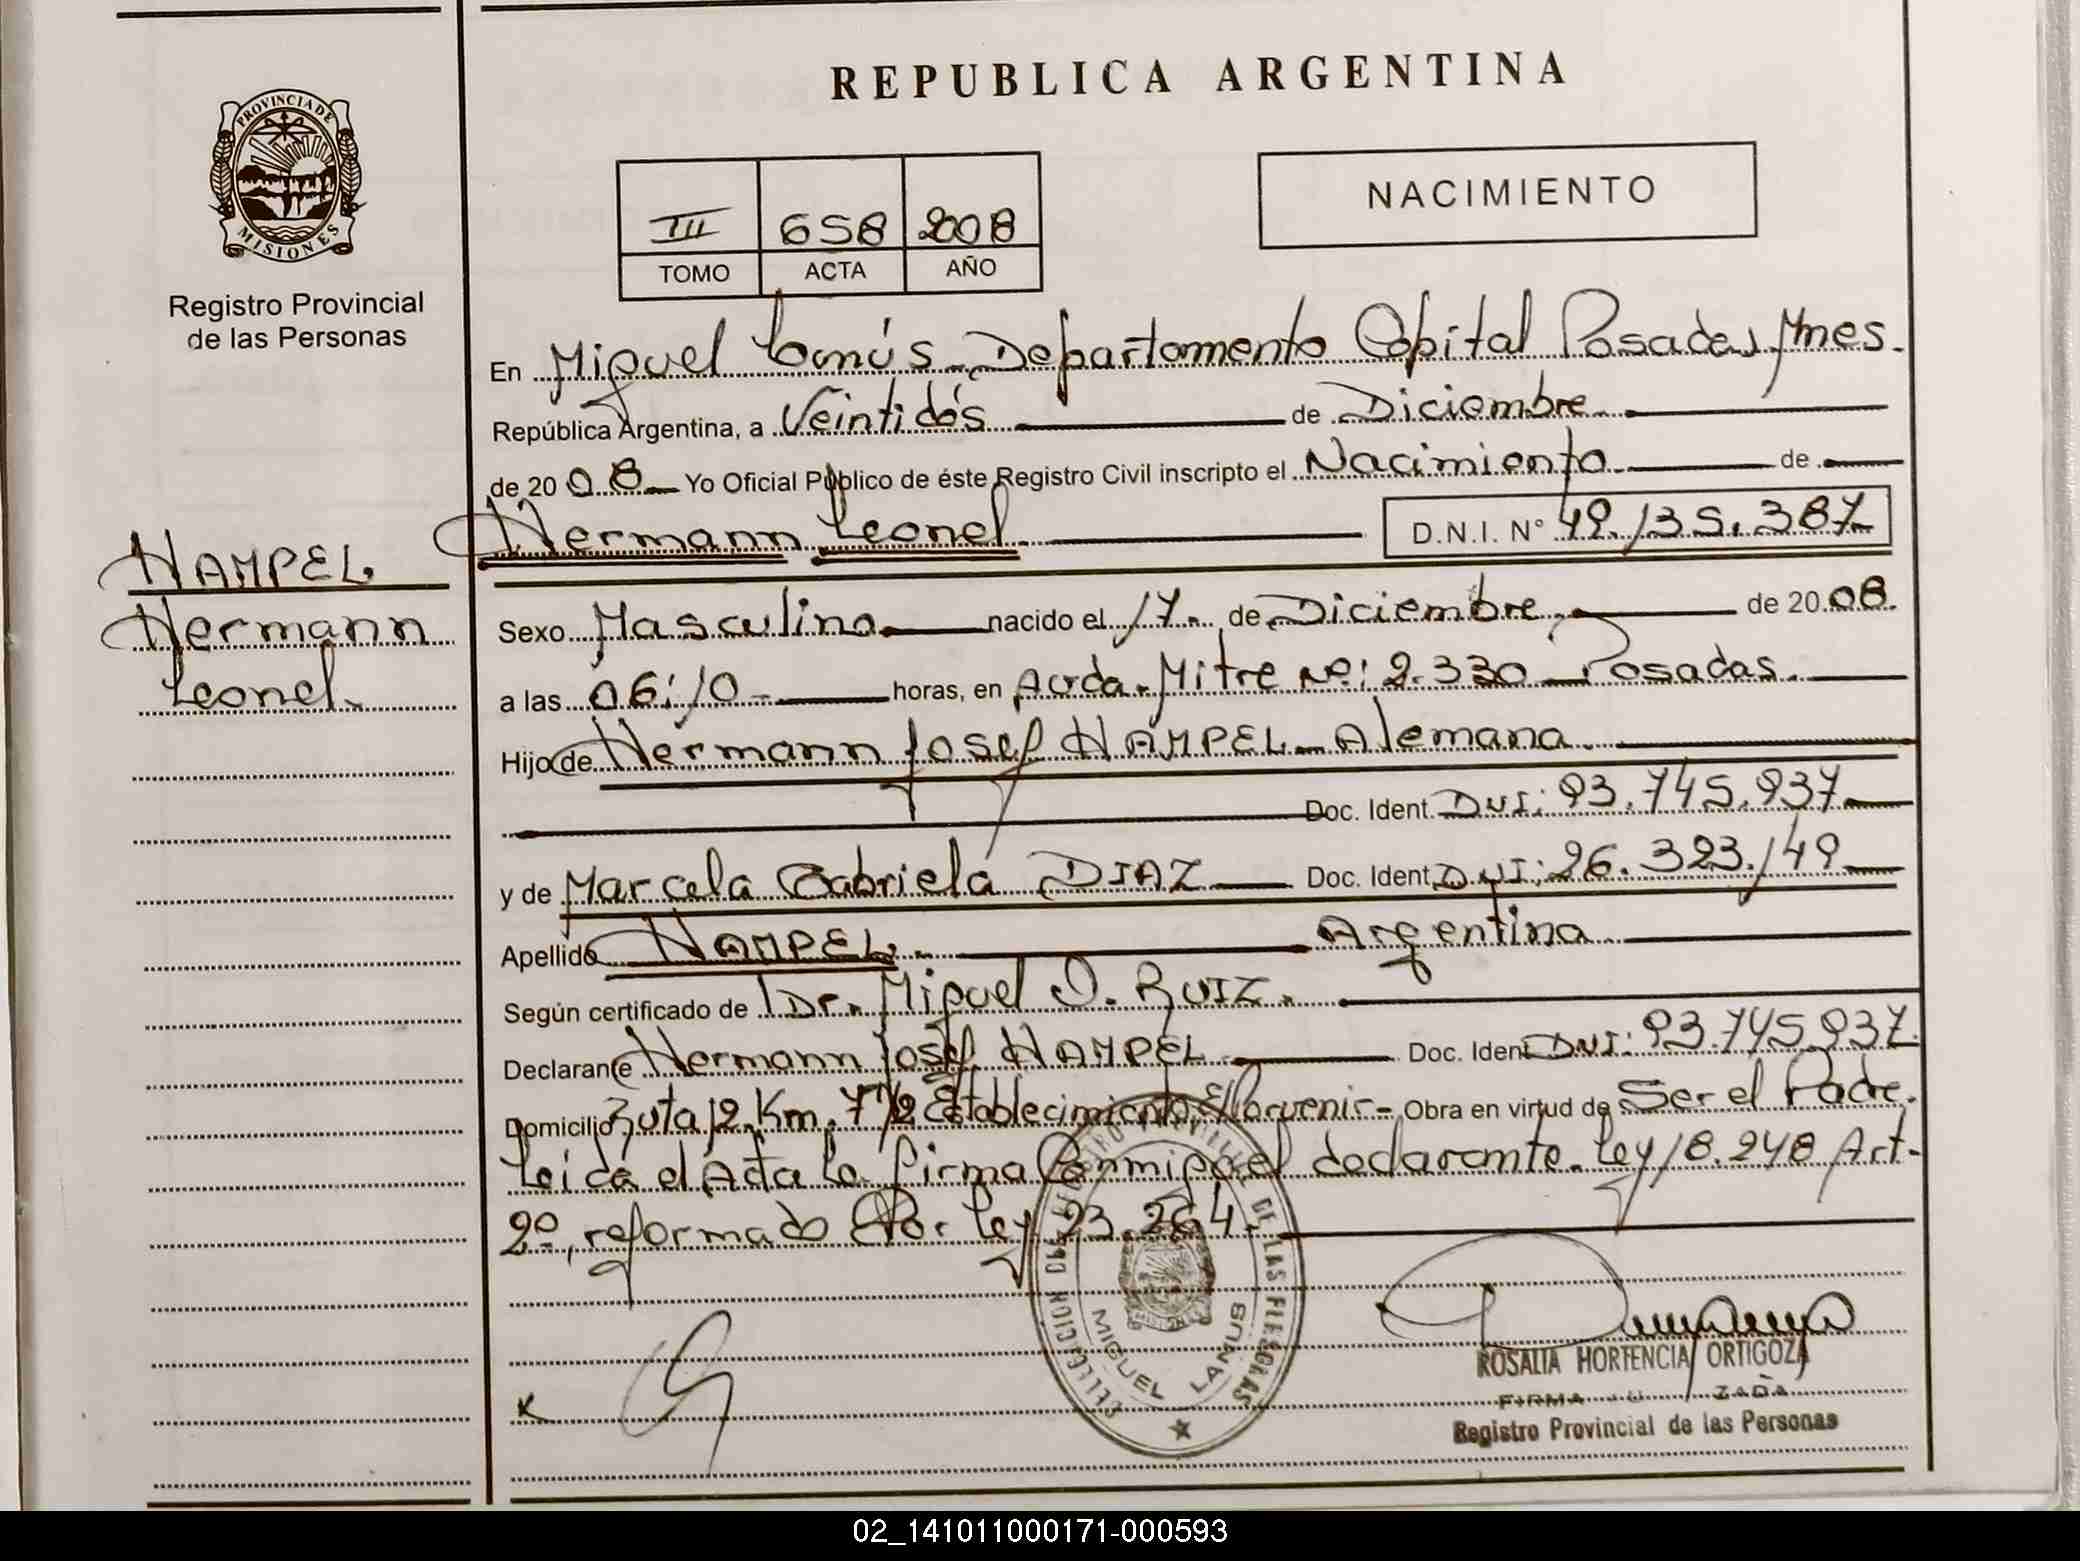 REPUBLICA ARGENTINA
PROVINCIA DE
MISIONES
Registro Provincial
de las Personas
III 658 2008
TOMO ACTA AÑO
NACIMIENTO
En Miguel Lanús - Departamento Capital Posadas, Mnes.
República Argentina, a Veintidós de Diciembre
de 2008 Yo Oficial Público de éste Registro Civil inscripto el Nacimiento de
Hermann Leonel D.N.I. Nº 49.135.387
HAMPEL
Hermann
Leonel.
Sexo Masculino nacido el 17 de Diciembre de 2008.
a las 06:10 horas, en Avda. Mitre Nº: 2.330 Posadas.
Hijo de Hermann Josef HAMPEL - Alemana
Doc. Ident. DNI: 93.745.937
y de Marcela Gabriela DIAZ Doc. Ident. DNI: 26.323.149
Apellido HAMPEL Argentina
Según certificado de Dr. Miguel O. RUIZ.
Declarante Hermann Josef HAMPEL Doc. Ident. DNI: 93.745.937.
Domicilio Ruta 12 Km. 7 1/2 Establecimiento El Porvenir - Obra en virtud de Ser el Padre.
Leída el Acta la firma Conmigo el declarante. Ley 18.248 Art.
2º, reformado Por Ley 23.264.
MIGUEL LANUS
ROSALIA HORTENCIA ORTIGOZA
FIRMA
Registro Provincial de las Personas
02_141011000171-000593